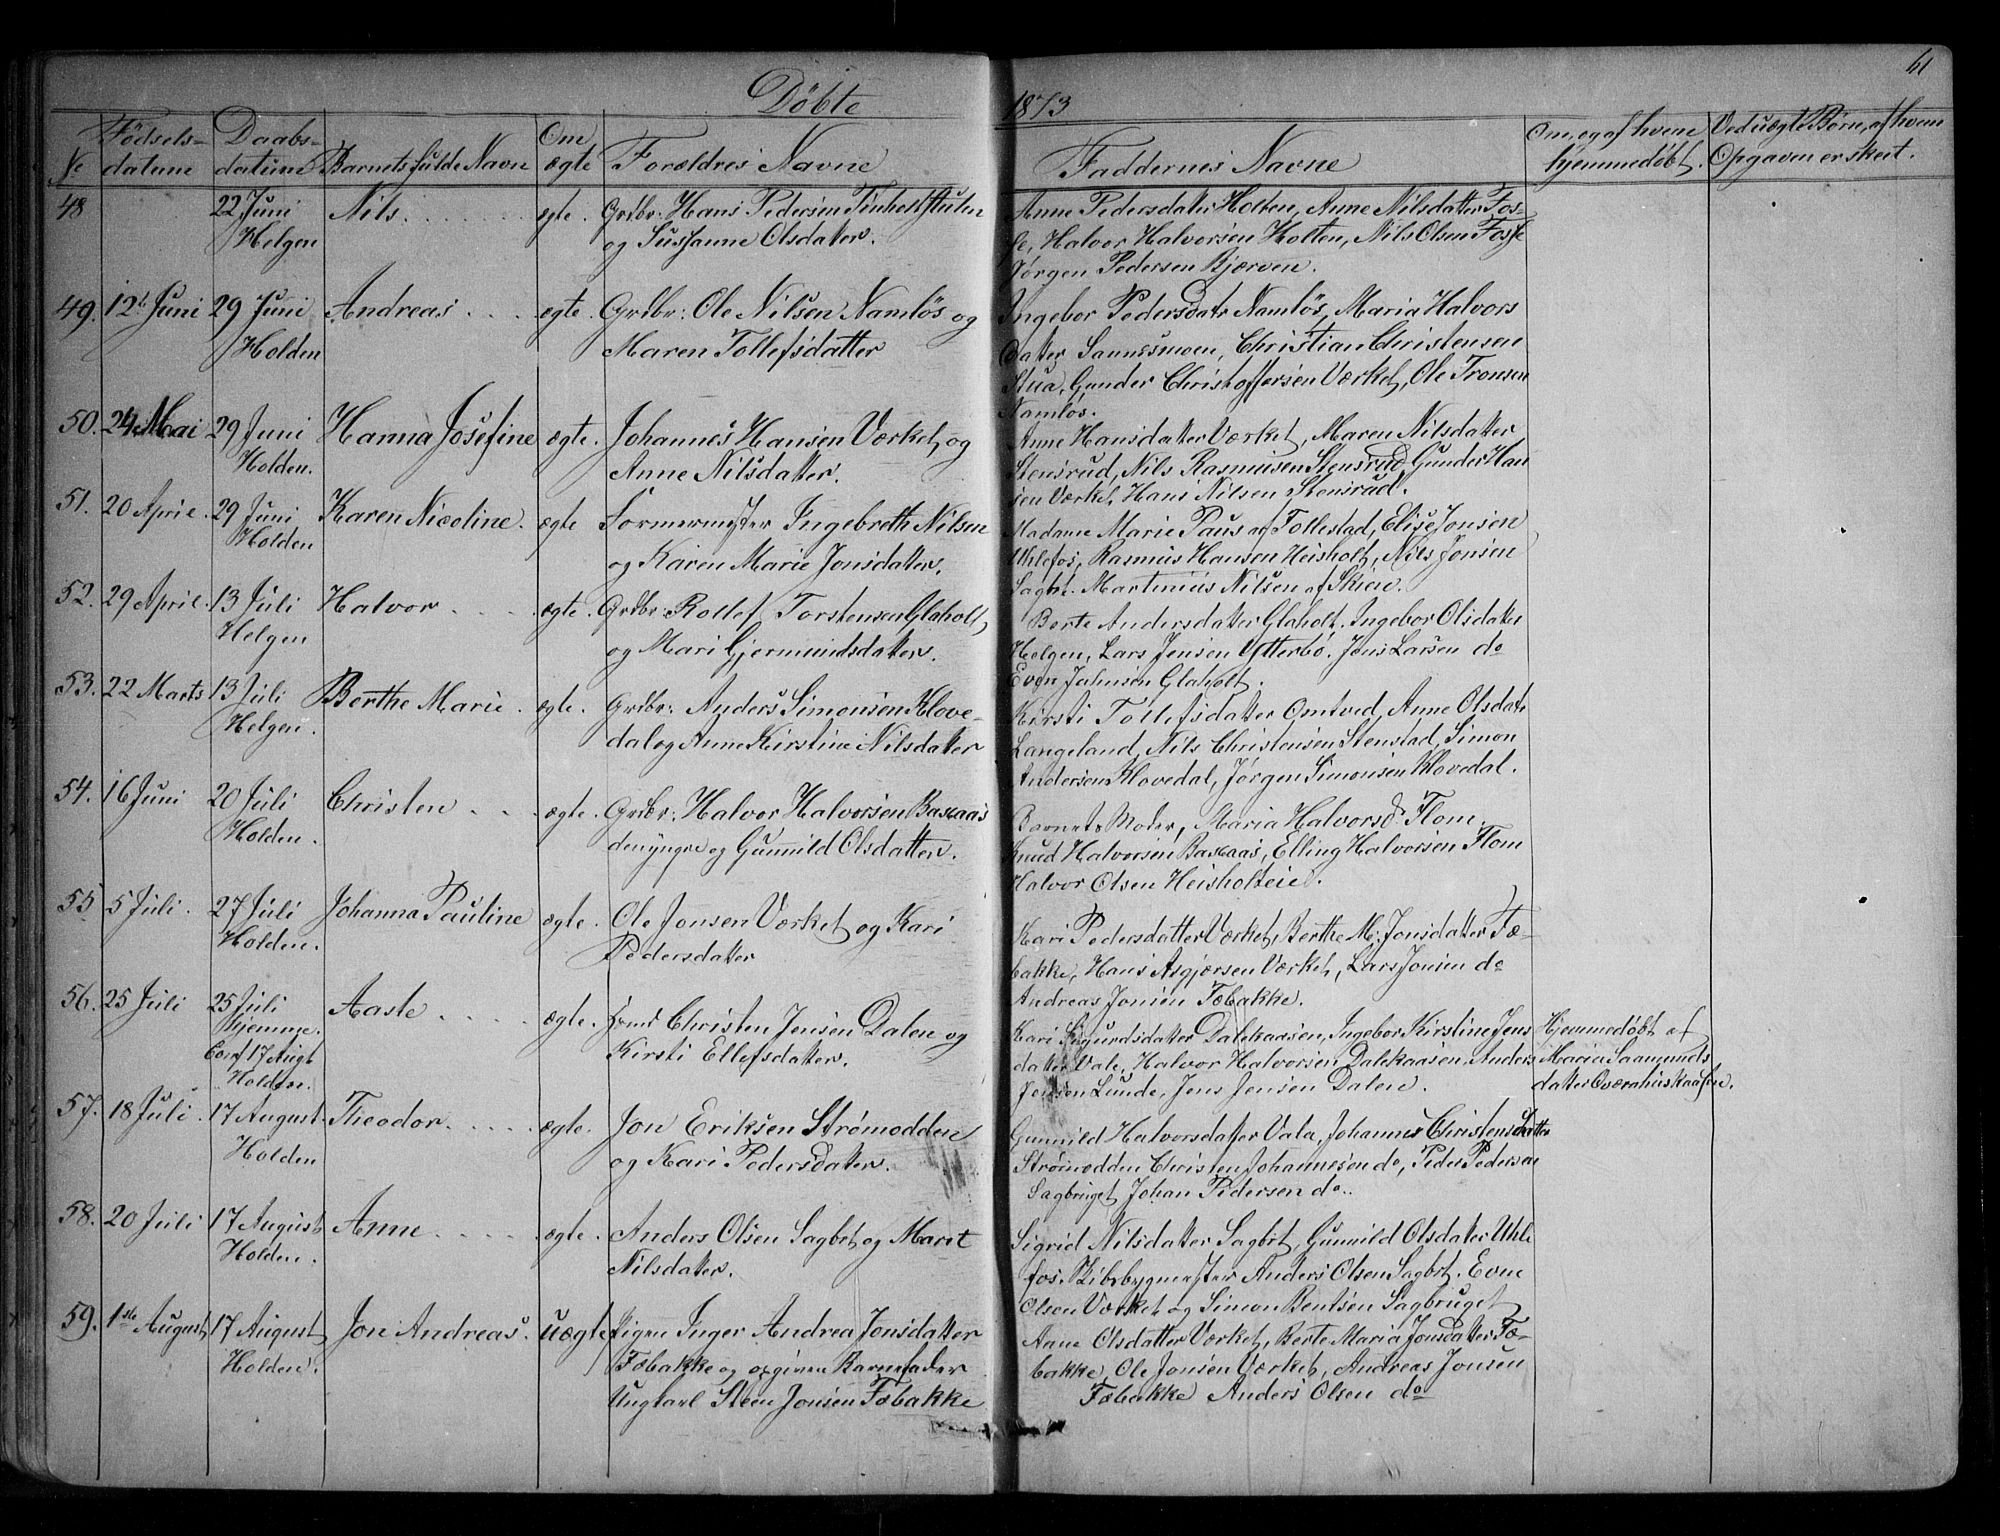 61
Döbte 1873
No
Födsels-
datum
Daabs-
datum
Barnets fulde Navn
Om
ægte
Forældres Navne
Faddernes Navne
Om, og af hvem
hjemmedöbt.
Ved uægte Börn, af hvem
Opgaven er skeet.
48
22 Juni
Helgen
Nils
ægte.
Grdbr: Hans Pedersen
og Sussanne Olsdatter.
Anne Pedersdatter Holten, Anne Nilsdatter Fos-
se, Halvor Halvorsen Holten, Nils Olsen Fosse
Jörgen Pedersen Bjærven.
49. 12t Juni
29 Juni
Holden
Andreas
ægte.
Grdbr: Ole Nilsen Namlös og
Maren Tollefsdatter
Ingebor Pedersdatr Namlös, Maria Halvors
datter Saunesmoen, Christian Christensen
Stua, Gunder Christoffersen Værket, Ole Tronsen
Namlös.
50. 24 Mai
29 Juni
Holden.
Hanna Josefine
ægte.
Johannes Hansen Værket, og
Anne Nilsdatter.
Anne Hansdatter Værket, Maren Nilsdatter
Stensrud, Nils Rasmusen Stensrud, Gunder Han
sen Værket, Hans Nilsen Stensrud.
51. 20 April
29 Juni
Holden
Karen Nicoline.
ægte
Formermester Ingebreth Nilsen
og Karen Marie Jonsdatter.
Madame Marie Paus af Tollestad, Elise Jonsen
Uhlefos, Rasmus Hansen Heisholt, Nils Jensen
Sagbr. Martinius Nilsen af Skien.
52. 29 April
13 Juli
Helgen
Halvor
ægte.
Grdbr: Rollef Torstensen Glaholt,
og Mari Gjermundsdatter.
Berte Andersdatter Glaholt. Ingebor Olsdatter
Helgen, Lars Jensen Ytterbö. Jens Larsen do
Even Jahnsen Glaholt.
53. 22 Marts
13 Juli
Helgen.
Berthe Marie.
ægte.
Grdbr: Anders Simonsen Klove-
dal og Anne Kirstine Nilsdatter
Kirsti Tollefsdatter Omtved, Anne Olsdatr
Langeland, Nils Christensen Stenstad, Simon
Andersen Klovedal, Jörgen Simonsen Klovedal.
54. 16 Juni
20 Juli
Holden.
Christen
ægte.
Grdbr: Halvor Halvorsen Baskaas
den yngre og Gunnild Olsdatter.
Barnets Moder, Maria Halvorsd. Flom.
Knud Halvorsen Baskaas, Elling Halvorsen Flom
Halvor Olsen Heisholteie.
55 5 Juli.
27 Juli
Holden.
Johanna Pauline
ægte.
Ole Jonsen Værket og Kari
Pedersdatter
Kari Pedersdatter Værket, Berthe M: Jonsdatter Fæ-
bakke, Hans Asgjærsen Værket, Lars Jonsen do
Andreas Jonsen Fæbakke.
56. 25 Juli
25 Juli
Hjemme.
Conf 17 Augt
Holden.
Aaste
ægte.
Christen Jensen Dalen og
Kirsti Ellefsdatter.
Kari Sigurdsdatter Dalekaasen, Ingebor Kirstine Jens
datter Vale, Halvor Halvorsen Dalekaasen, Anders
Jensen Lunde, Jens Jensen Dalen.
Hjemmedöbt af
Maria Saamunds
datter
57. 18 Juli.
17 August
Holden
Theodor.
ægte.
Jon Eriksen Strömodden
og Kari Pedersdatter.
Gunnild Halvorsdatter Vala, Johanne Christensdatter
Strömodden Christen Johannesen do, Peder Pedersen
Sagbruget Johan Pedersen do.
58. 20 Juli
17 August
Holden.
Anne
ægte.
Anders Olsen Sagbrt, og Marit
Nilsdatter.
Sigrid Nilsdatter Sagbrt, Gunnild Olsdatter Uhle
fos. Skibsbygmester Anders Olsen Sagbrt. Even
Olsen Værket og Simon Bentsen Sagbruget
59. 1ste August
17 August
Holden.
Jon Andreas.
uægte
Pigen Inger Andrea Jonsdatter
Fæbakke og opgiven Barnefader
Ungkarl Steen Jonsen Fæbakke
Anne Olsdatter Værket, Berte Maria Jonsdatter Fæ-
bakke, Ole Jonsen Værket, Andreas Jonsen
Fæbakke Anders Olsen do